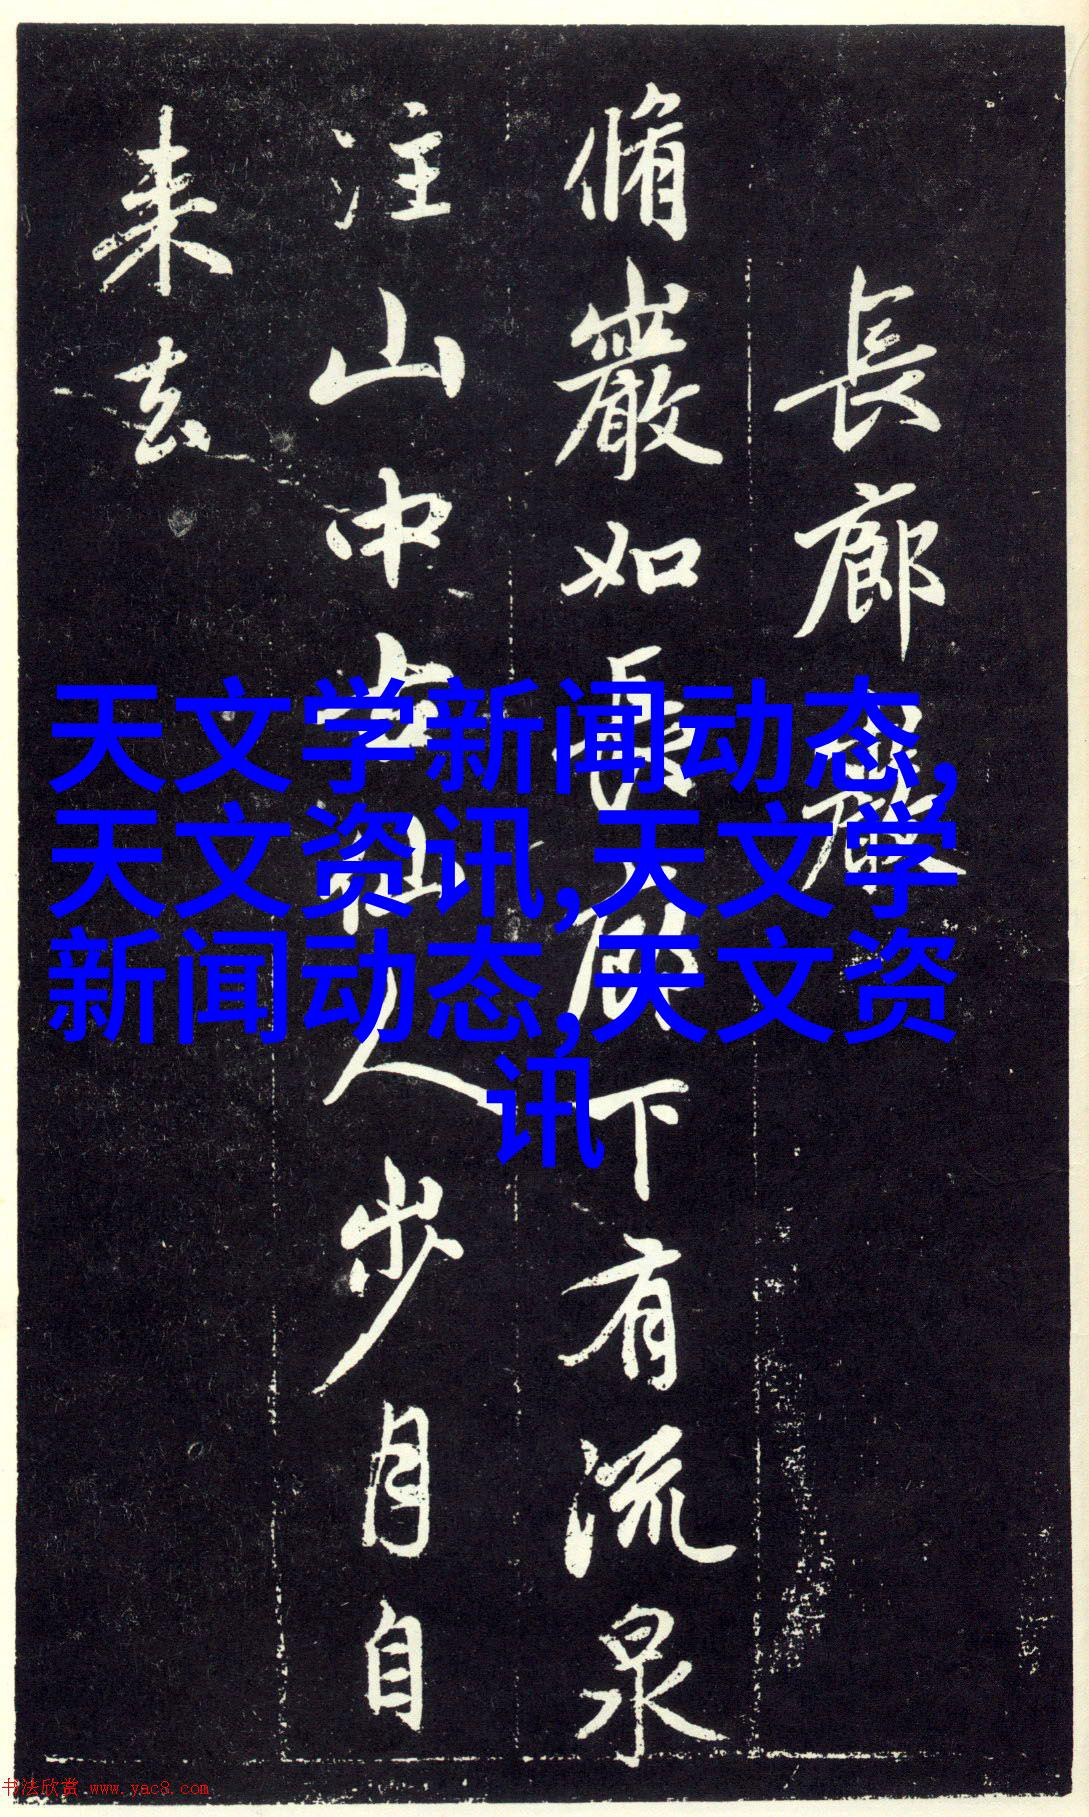 長廊巖
脩巖如長廊下有流泉
注山中古仙人步月自
来去
天文学新闻动态,
天文资讯,天文学
新闻动态,天文资
讯
书法欣赏 www.yac8.com